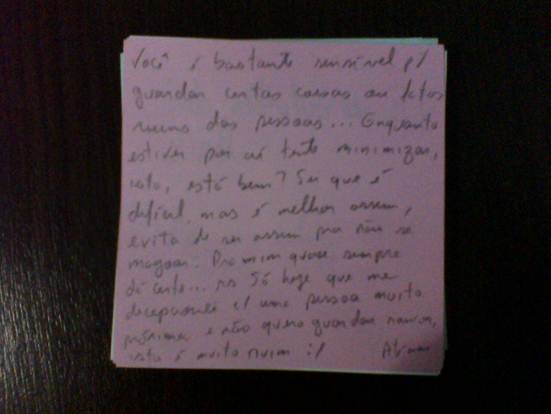 Você é bastante sensível p/
guardar certas coisas ou fatos
ruins das pessoas... Enquanto
estiver por aí tente minimizar,
isto, está bem? Sei que é
difícil, mas é melhor assim,
evita de ser assim pra não se
magoar. Pra mim quase sempre
dá certo... rs Só hoje que me
decepcionei c/ uma pessoa muito
próxima e não quero guardar rancor,
isto é muito ruim :/